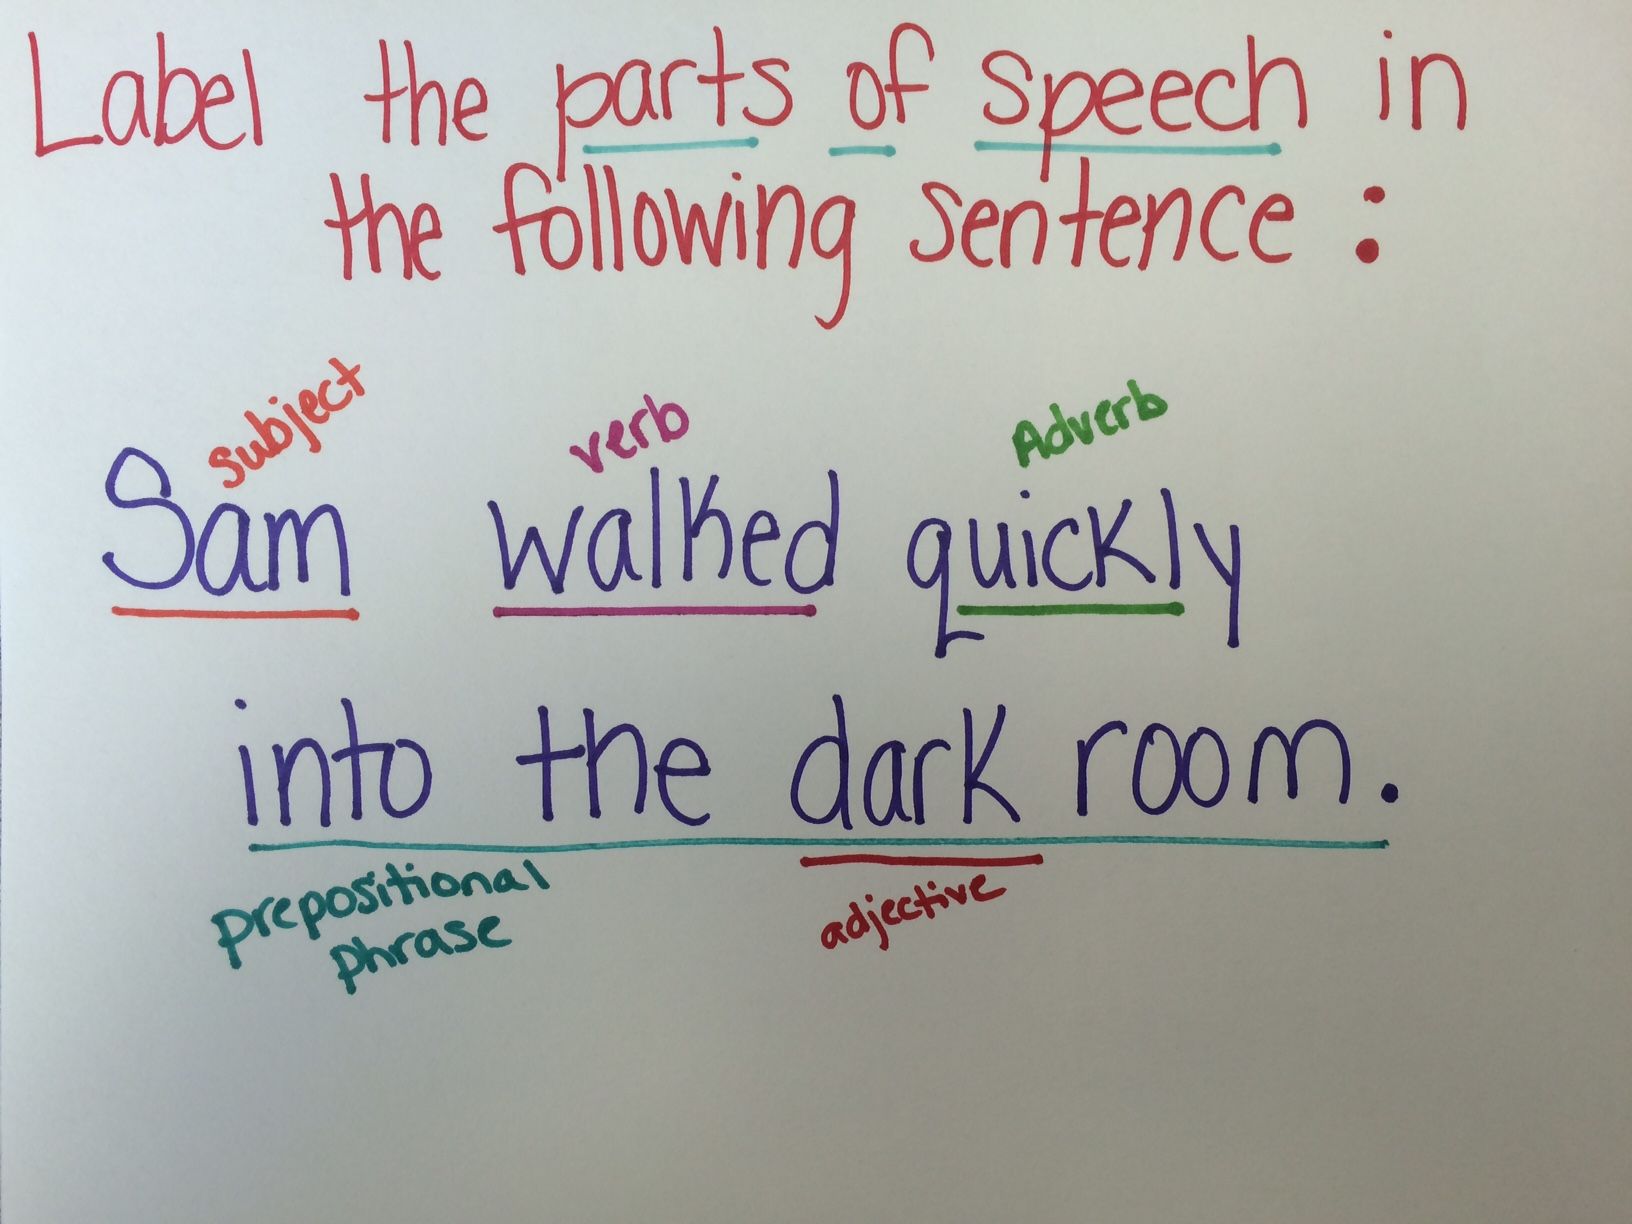 Label the parts of speech in
the following sentence :
subject verb Adverb
Sam walked quickly
into the dark room.
prepositional adjective
phrase